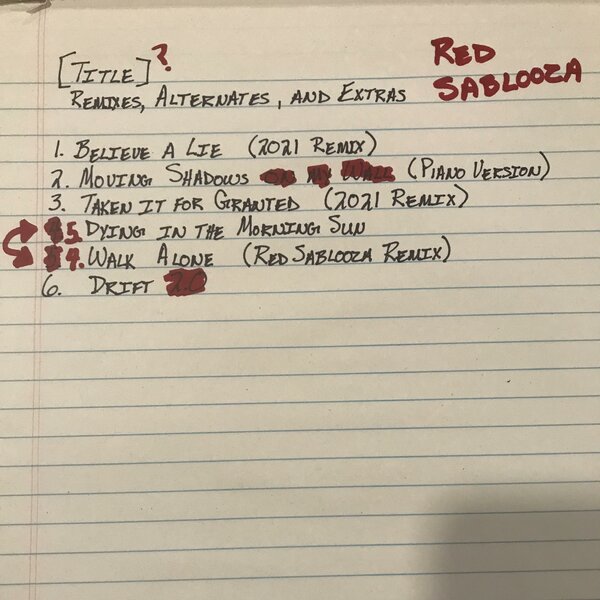 [Title]?
Red
Sablooza
Remixes, Alternates, and Extras
1. Believe a Lie (2021 Remix)
2. Moving Shadows on my Wall (Piano Version)
3. Taken it for Granted (2021 Remix)
5. Dying in the Morning Sun
4. Walk Alone (Red Sablooza Remix)
6. Drift 2.0